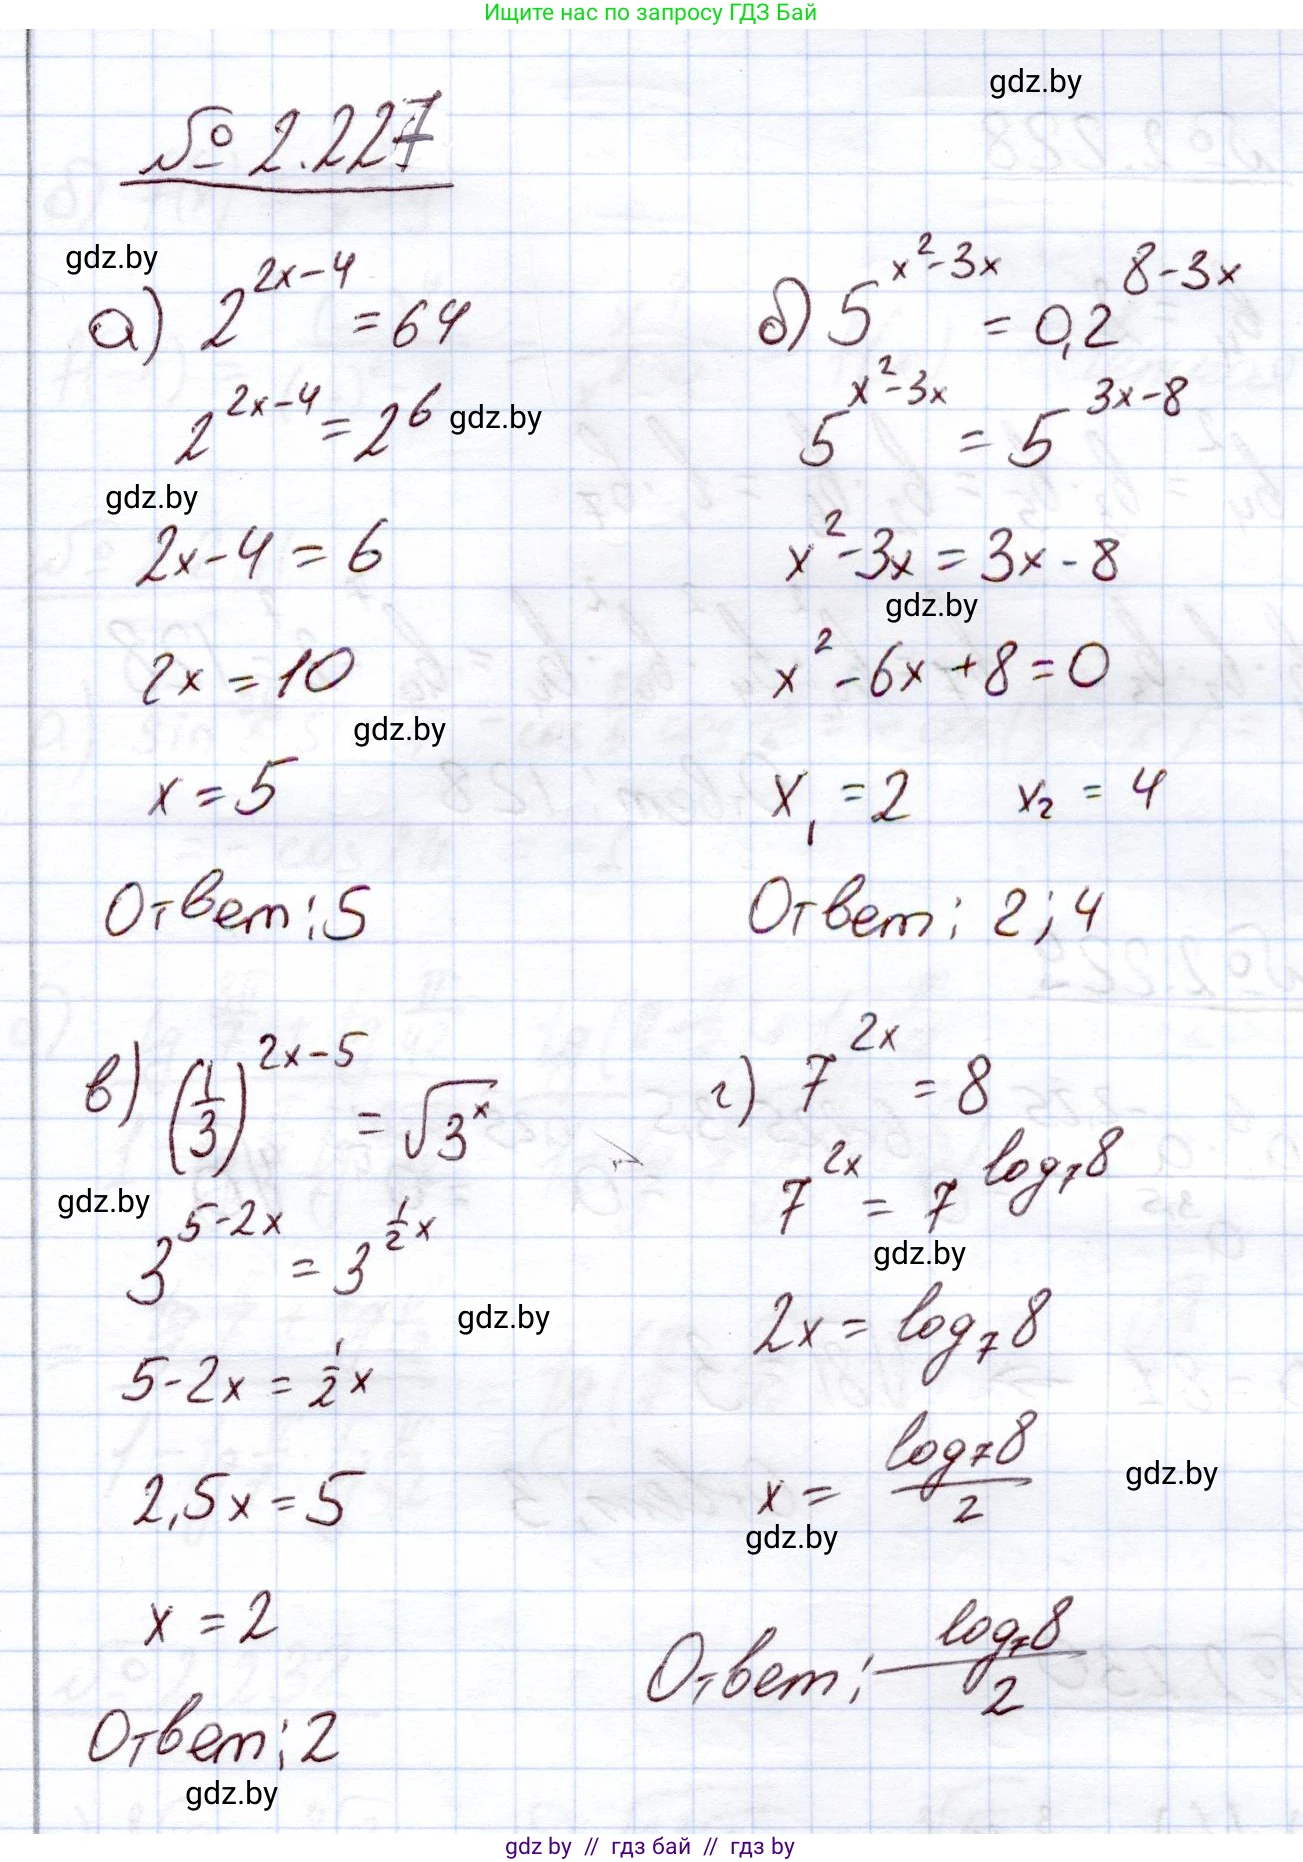 Ищите нас по запросу ГДЗ Бай
gdz.by
№ 2.227
gdz.by
а) 2^(2x-4) = 64
2^(2x-4) = 2^6 gdz.by
gdz.by
2x-4 = 6
2x = 10
gdz.by
x = 5
Ответ: 5
б) 5^(x²-3x) = 0,2^(8-3x)
5^(x²-3x) = 5^(3x-8)
x²-3x = 3x-8
gdz.by
x²-6x+8=0
x₁ = 2 x₂ = 4
Ответ: 2; 4
в) (1/3)^(2x-5) = √3^x
gdz.by
3^(5-2x) = 3^(1/2 x)
gdz.by
5-2x = 1/2 x
2,5x = 5
x = 2
Ответ: 2
gdz.by
г) 7^(2x) = 8
7^(2x) = 7^(log₇8)
gdz.by
2x = log₇8
x = log₇8/2
gdz.by
gdz.by
Ответ: log₇8/2
gdz by // гдз бай // гдз by